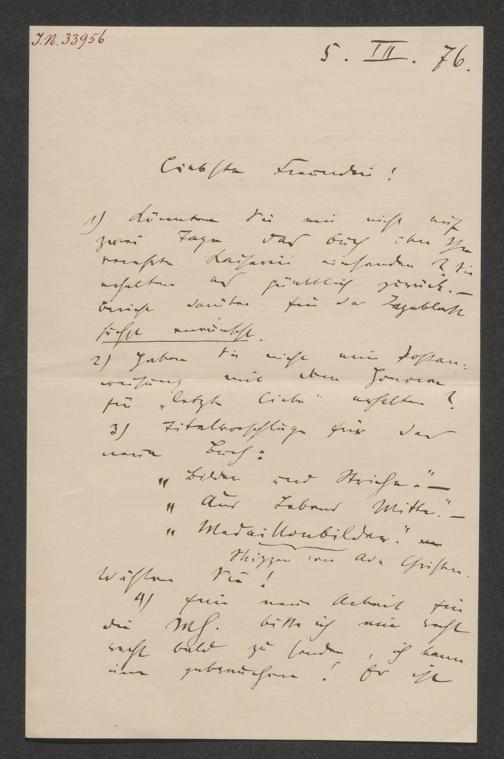 J.N. 33956
5. III. 76.
Liebste Freundin!
1) Könnten Sie mir nicht auf
zwei Tage das Buch über Ihre
verehrte Kaiserin einsenden? Sie
erhalten es pünktlich zurück. –
Bericht darüber für das Tagblatt
höchst erwünscht.
2) Haben Sie nicht eine Postan-
weisung mit dem Honorar
für „letzte Liebe" erhalten?
3) Titelvorschläge für das
neue Buch:
„Bilder und Striche." –
„Aus Lebens Mitte." –
„Medaillonbilder."
Skizzen von Ada Christen.
Wählen Sie!
4) Ihre neue Arbeit für
die bitte ich mir recht
recht bald zu senden, ich kann
sie gebrauchen! Es ist